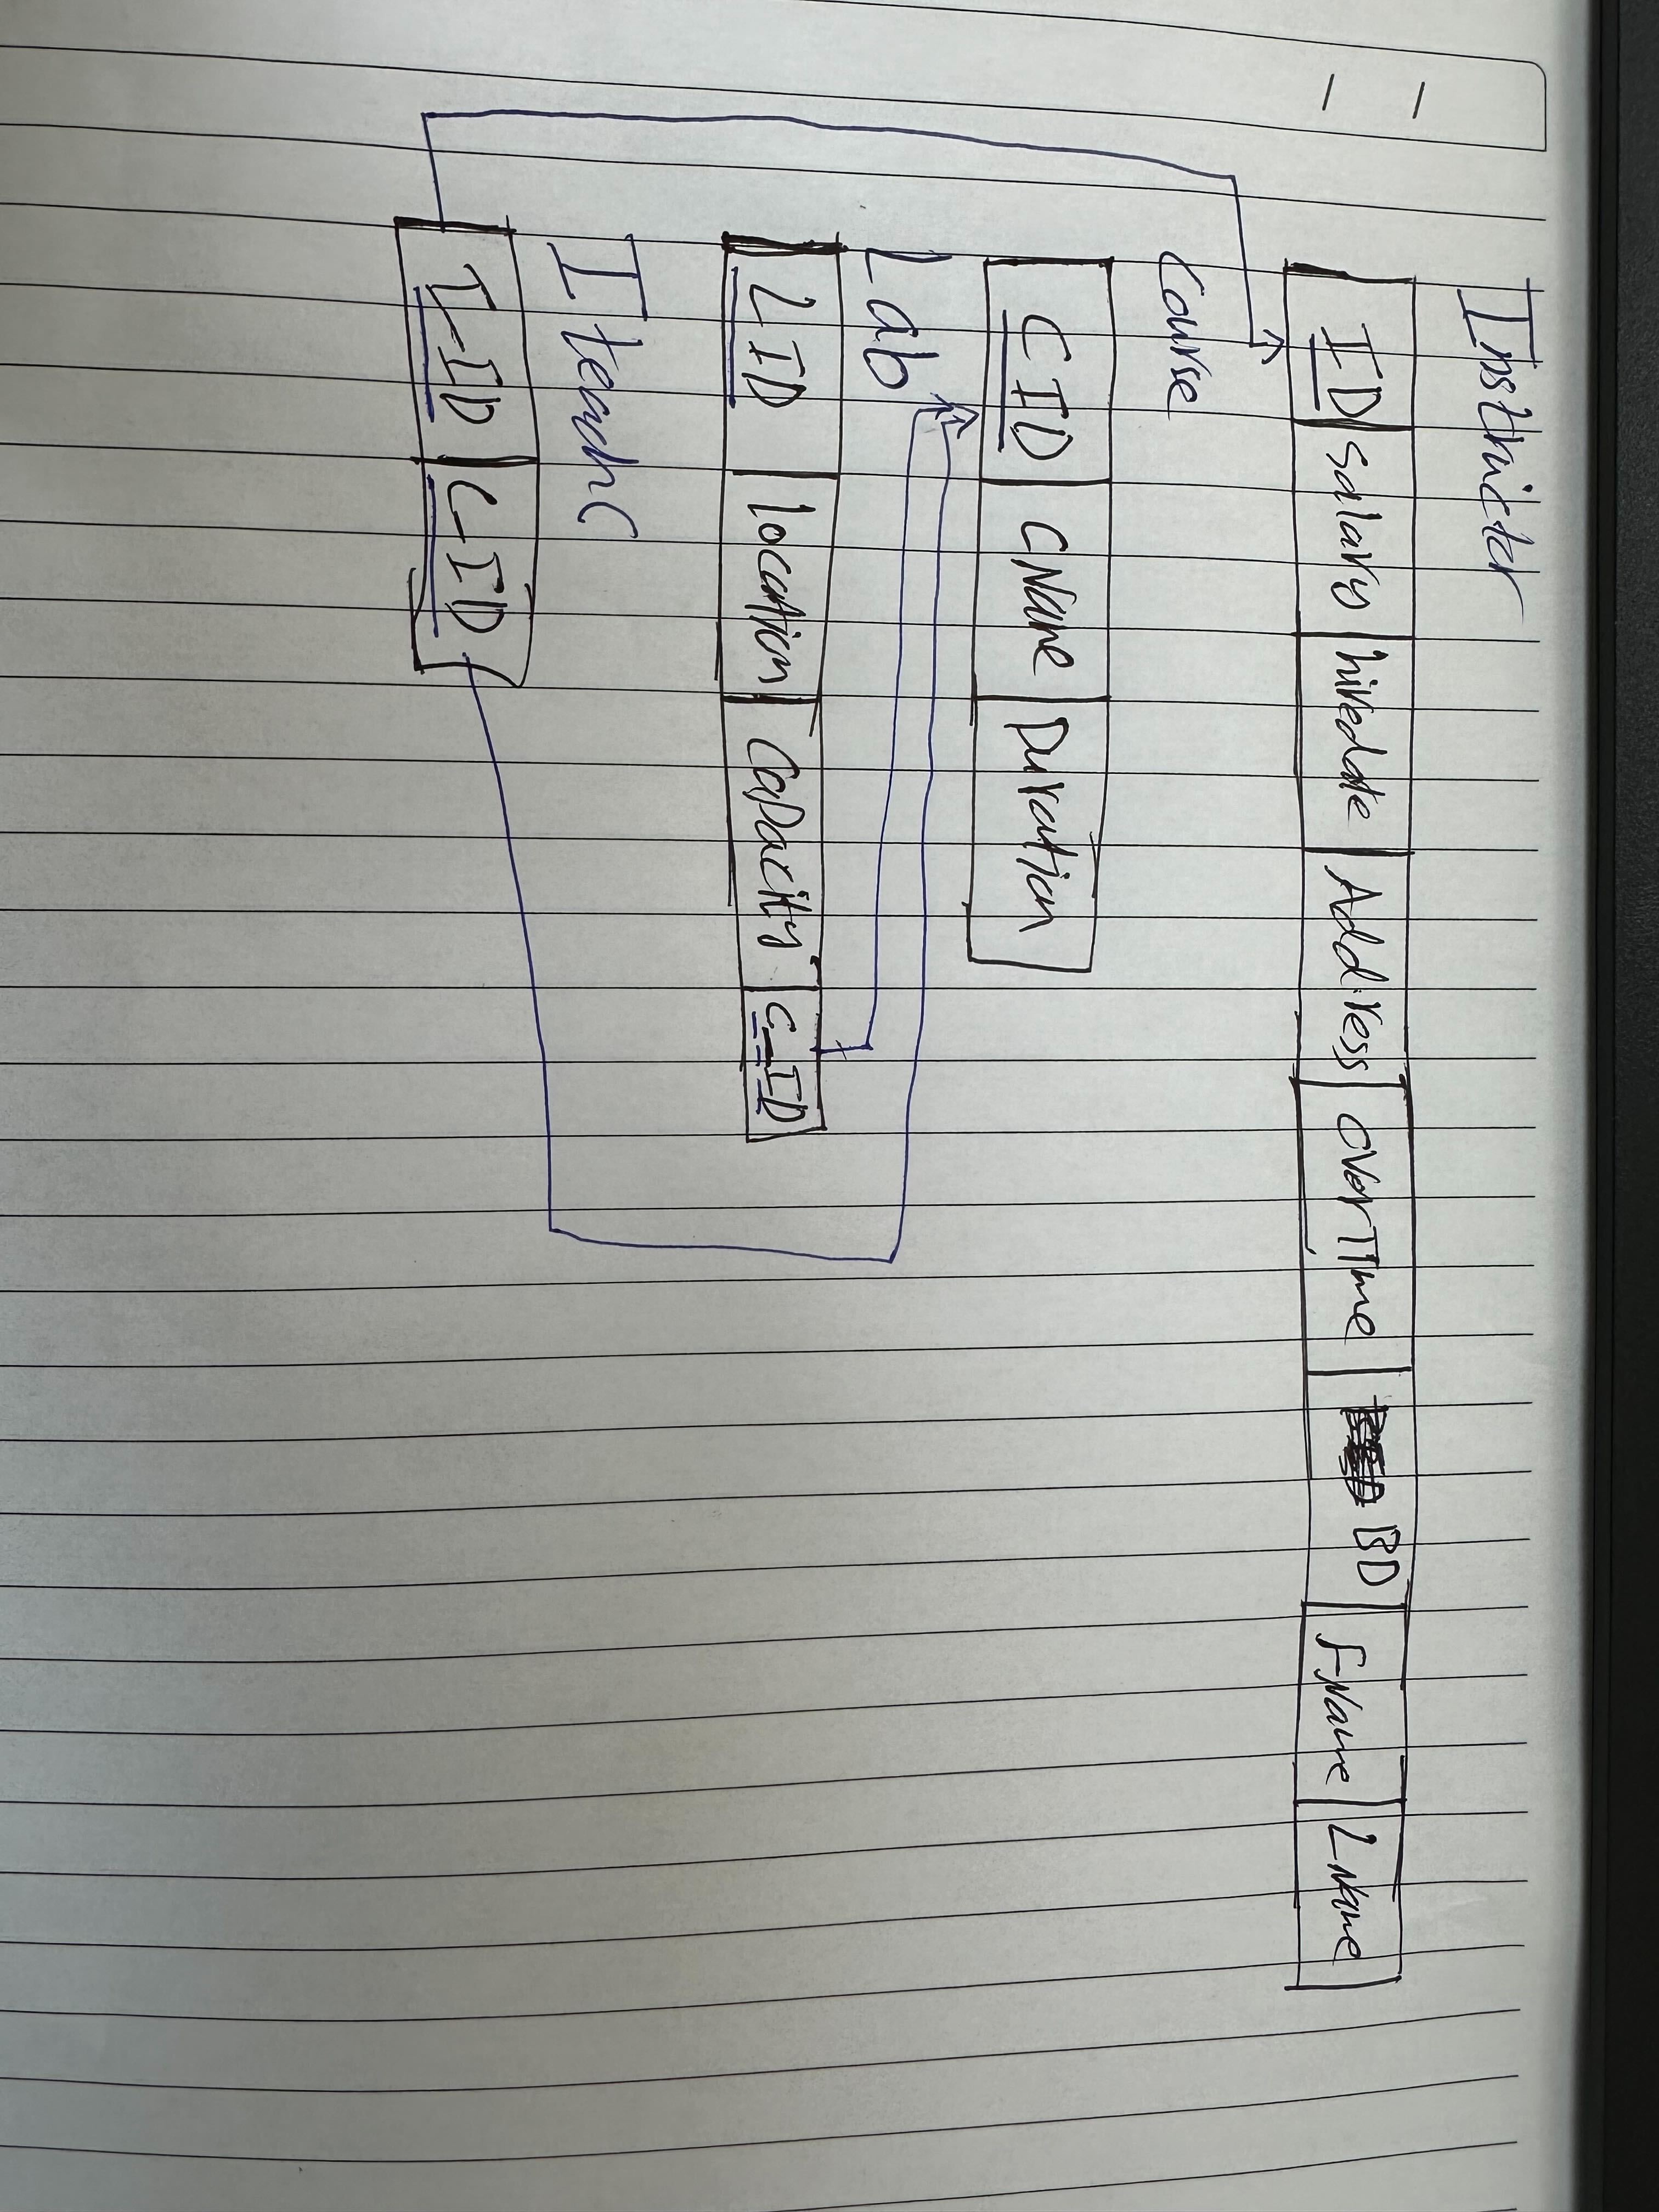 Instructor
ID salary hiredate Address OverTime BD fName LName
Course
CID CName Duration
Lab
LID location Capacity C_ID
I teach C
I_ID C_ID